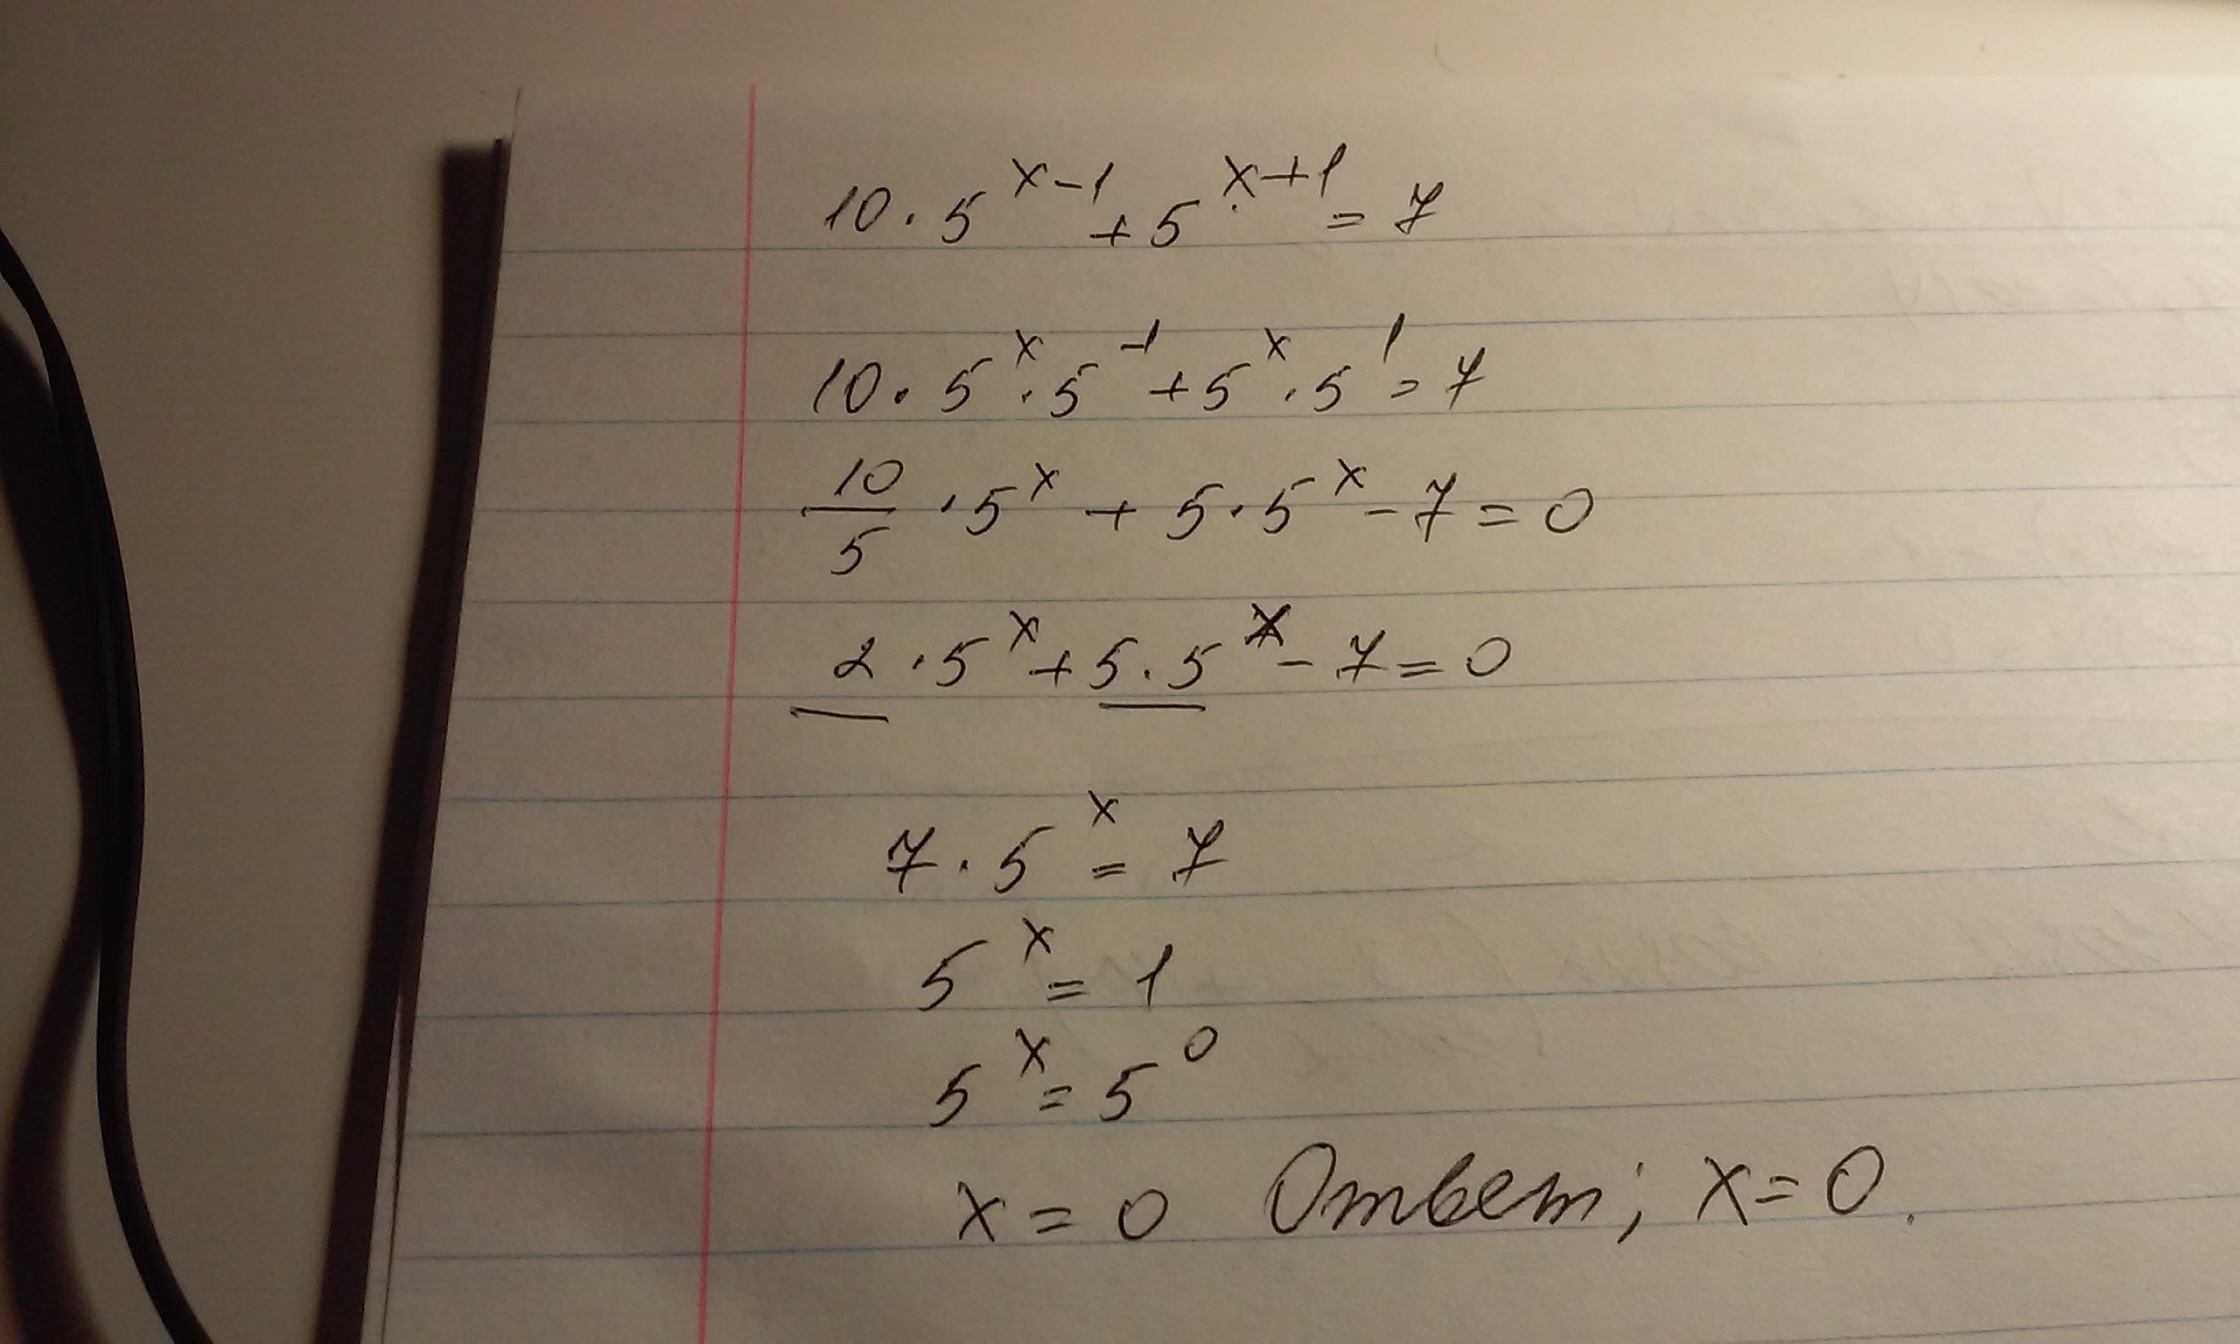 10 · 5^(x-1) + 5^(x+1) = 7
10 · 5^x · 5^(-1) + 5^x · 5^1 = 7
10/5 · 5^x + 5 · 5^x - 7 = 0
2 · 5^x + 5 · 5^x - 7 = 0
7 · 5^x = 7
5^x = 1
5^x = 5^0
x = 0 Ответ; x = 0.